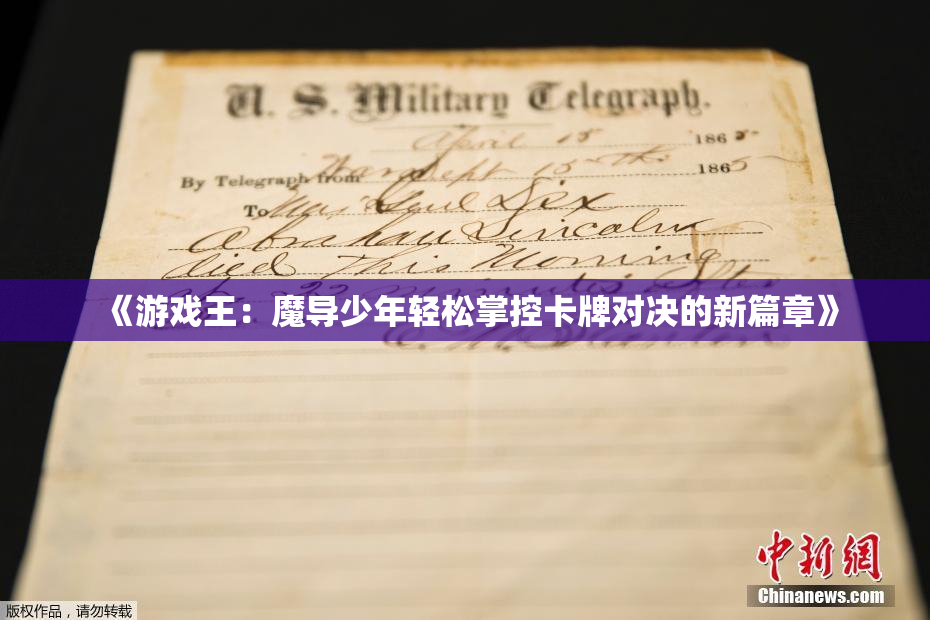 U. S. Military Telegraph.
April 15 1865
By Telegraph from War Dept 15th 1865
To Maj Genl Dix
Abraham Lincoln
died This Morning
at 22 minutes after
《游戏王：魔导少年轻松掌控卡牌对决的新篇章》
E. M. Stanton
中新网
Chinanews.com
版权作品，请勿转载